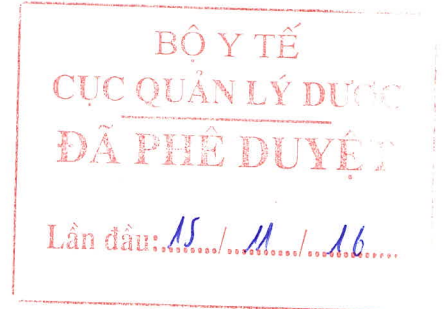 BỘ Y TẾ
CỤC QUẢN LÝ DƯỢC
ĐÃ PHÊ DUYỆT
Lần đầu: 15 / 11 / 16